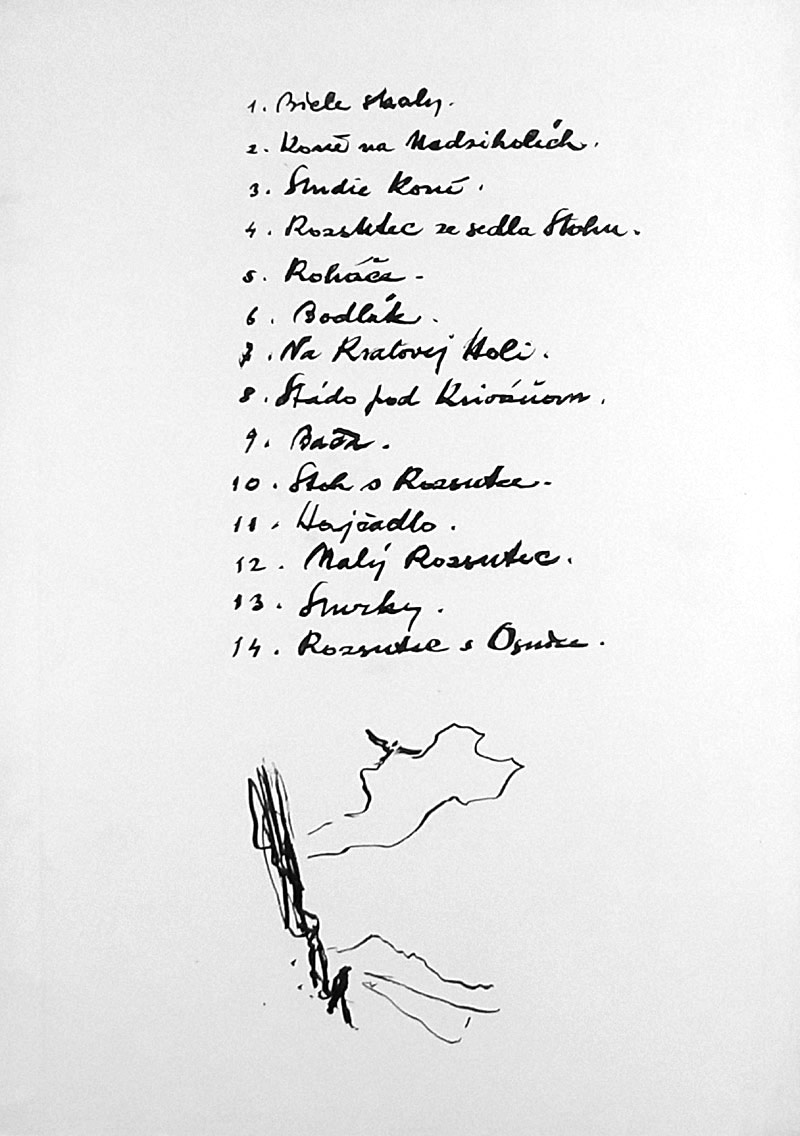 1. Biele skaly.
2. Koně na Nadziholiéch.
3. Studie Koně.
4. Rozsutec ze sedla Stohu.
5. Roháče -
6. Bodlák.
7. Na Kratovej Holi.
8. Stádo pod Kriváňom.
9. Bača.
10. Stoh s Rozsutce -
11. Hajčadlo.
12. Malý Rozsutec.
13. Smrky.
14. Rozsutec s Osnice.